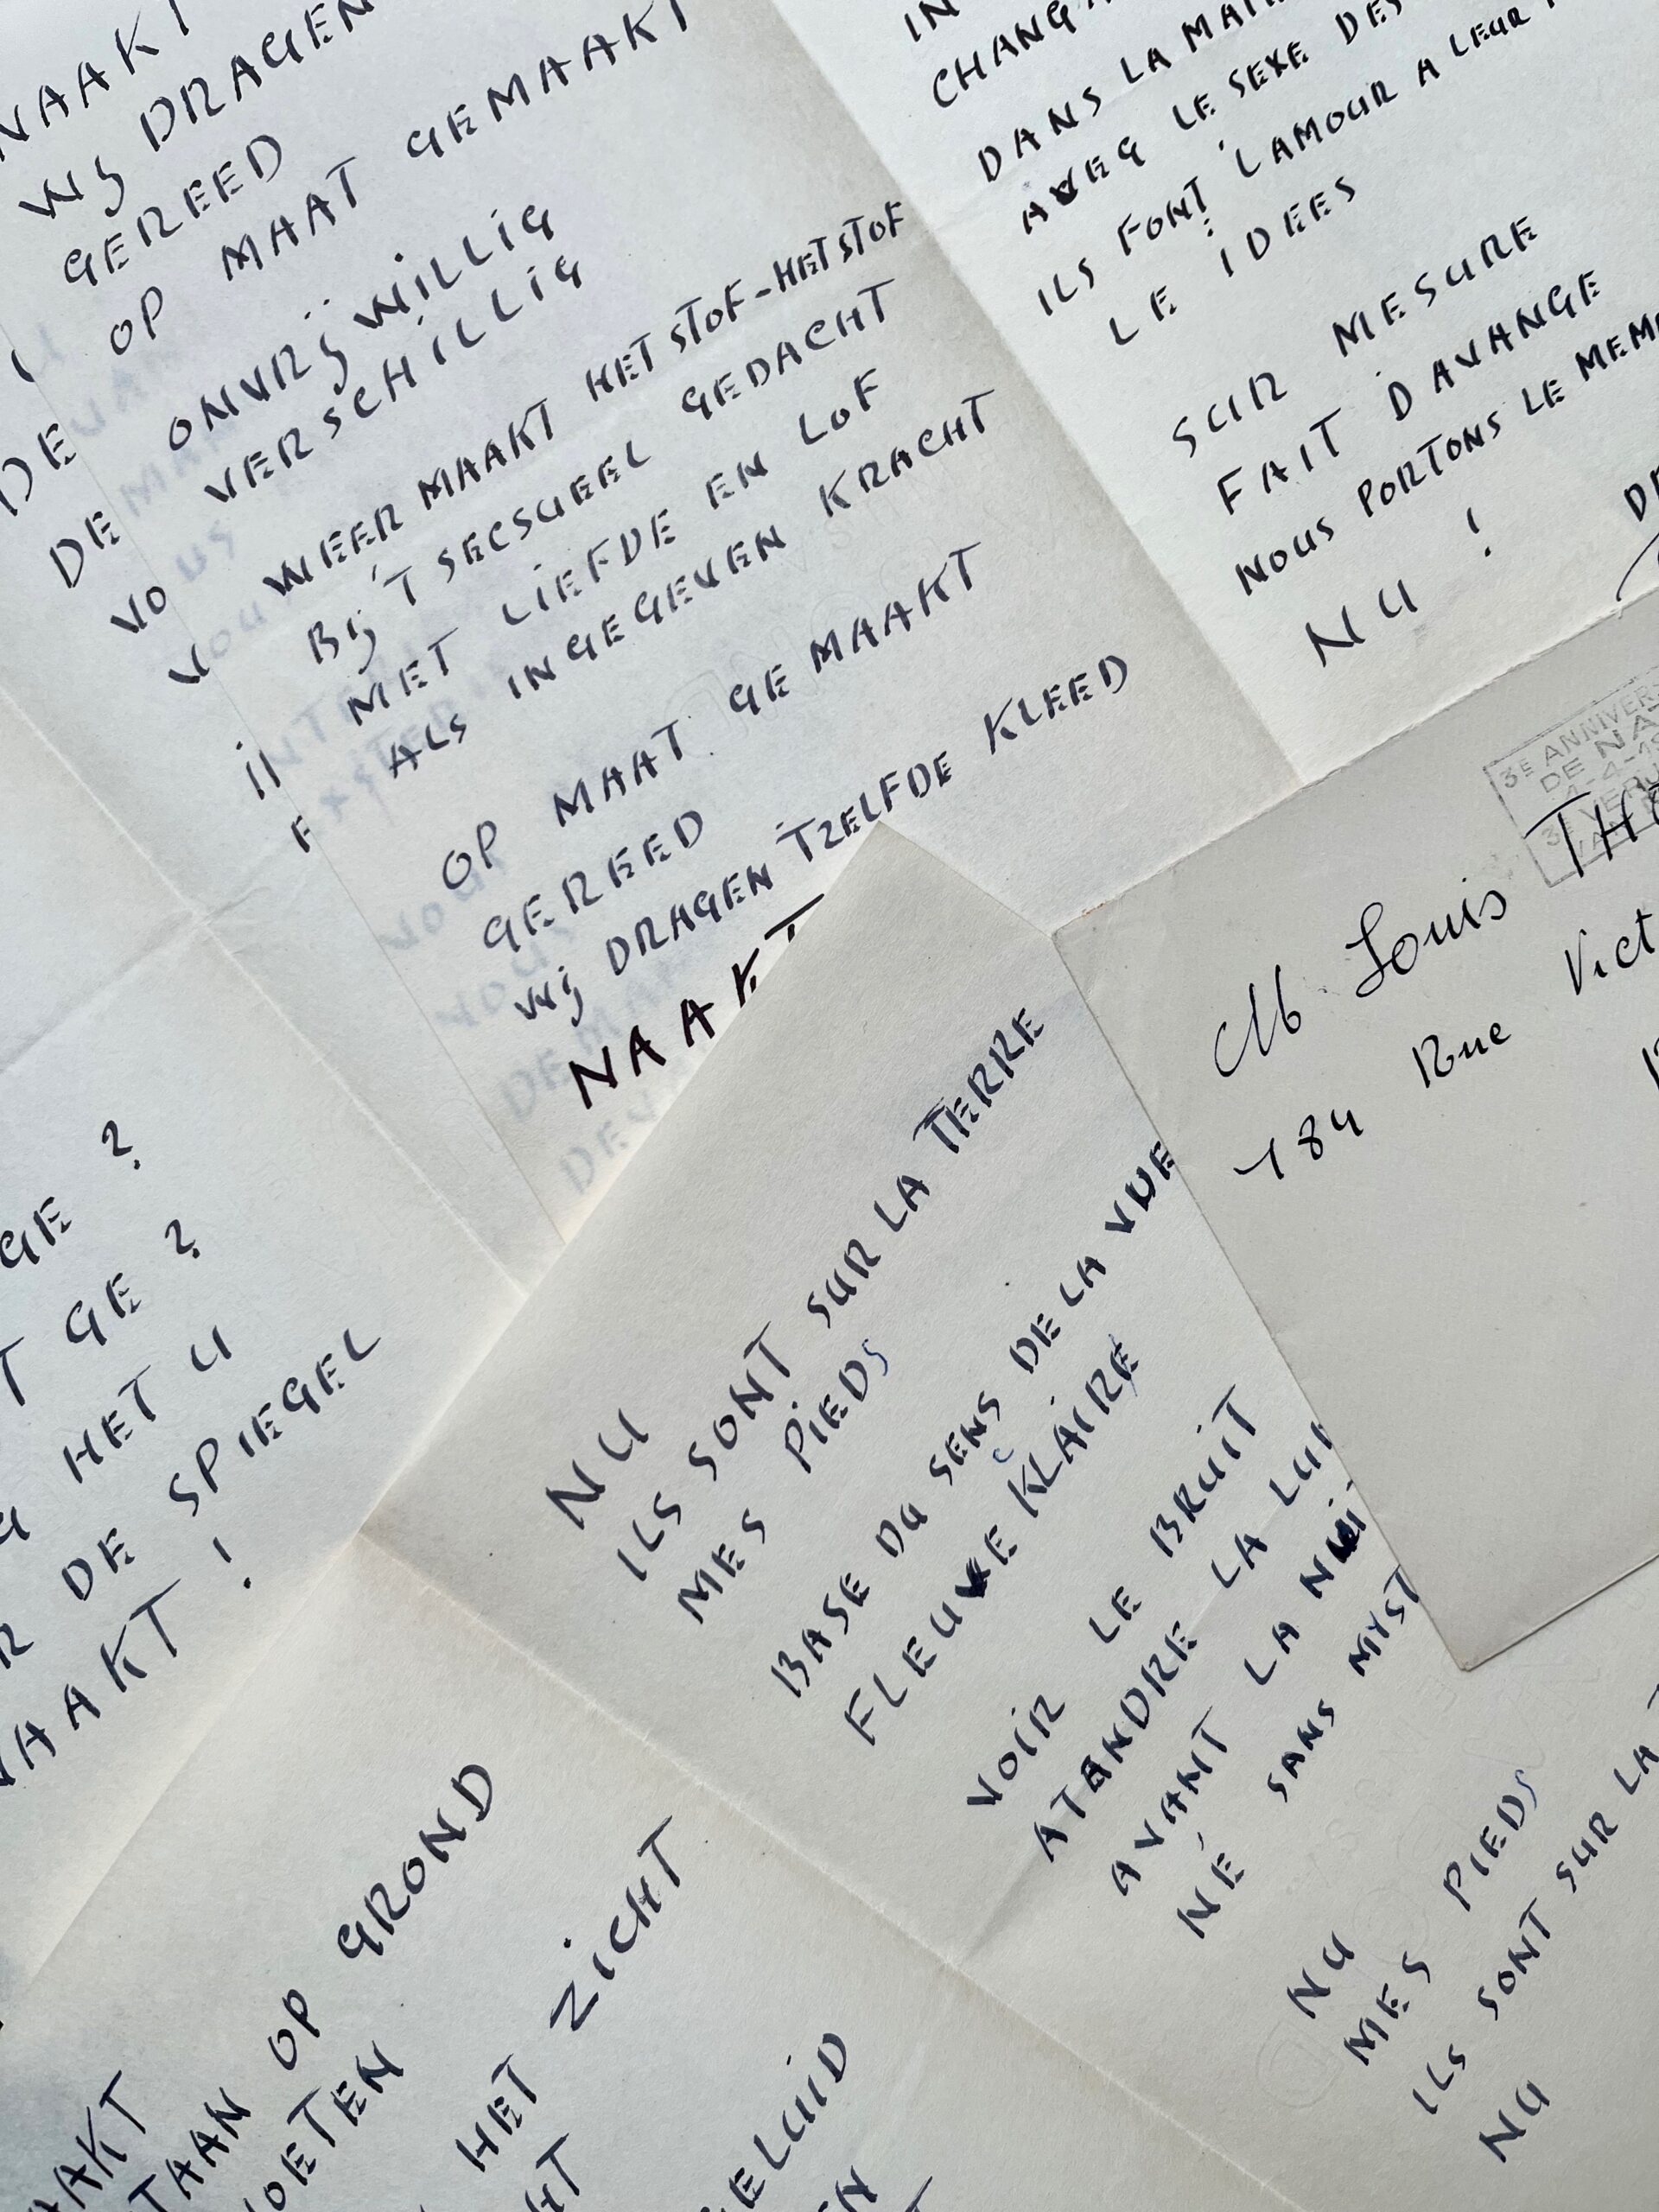 NAAKT
WIJ DRAGEN
GEREED
OP MAAT GEMAAKT
DE ONVRIJWILLIG
DE VERSCHILLIG
WEER MAAKT HET STOF-HET STOF
BIJ 'T SECSUEEL GEDACHT
MET LIEFDE EN LOF
ALS INGEGEVEN KRACHT
OP MAAT GEMAAKT
GEREED
WIJ DRAGEN TZELFDE KLEED
NAAKT
IN
DANS LA
AVEG LE SEXE DES
ILS FONT LAMOUR A LEUR
LE IDEES
SUR MESURE
FAIT DAVANGE
NOUS PORTONS LE
NU !
3E
DE
M. Louis
184 Rue
GE ?
GE ?
HET U
DE SPIEGEL
!
NU
ILS SONT SUR LA TERRE
MES PIEDS
BASE DU SENS DE LA VUE
FLEUVE KLAIRE
VOIR LE BRUIT
ATANDRE LA
AVANT LA NUI
NÉ SANS MYST
NU
MES PIEDS
ILS SONT SUR LA
NU
OP GROND
HET ZICHT